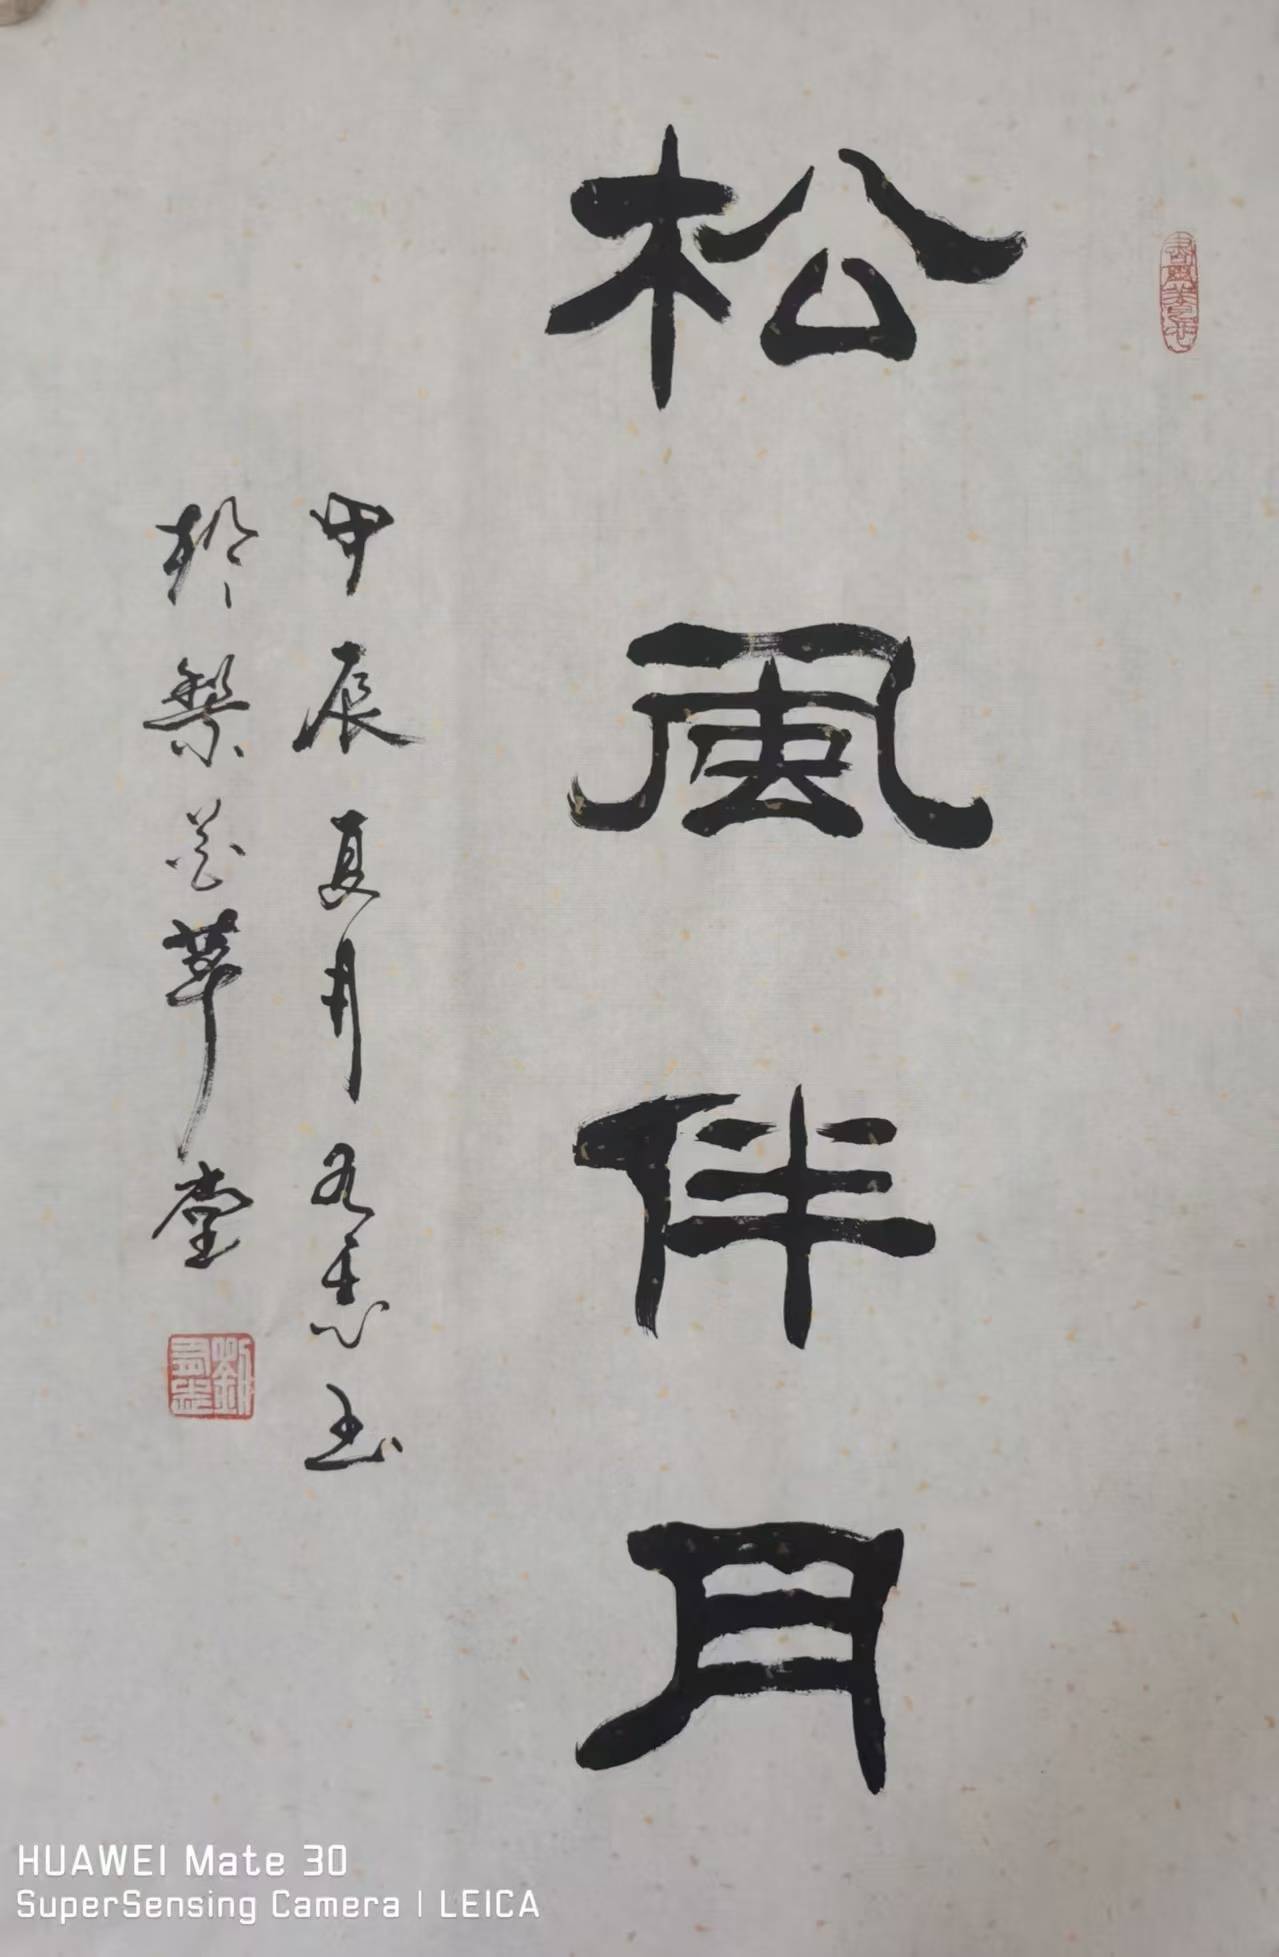 松風伴月
甲辰夏月友志书
於梨花草堂
HUAWEI Mate 30
SuperSensing Camera | LEICA